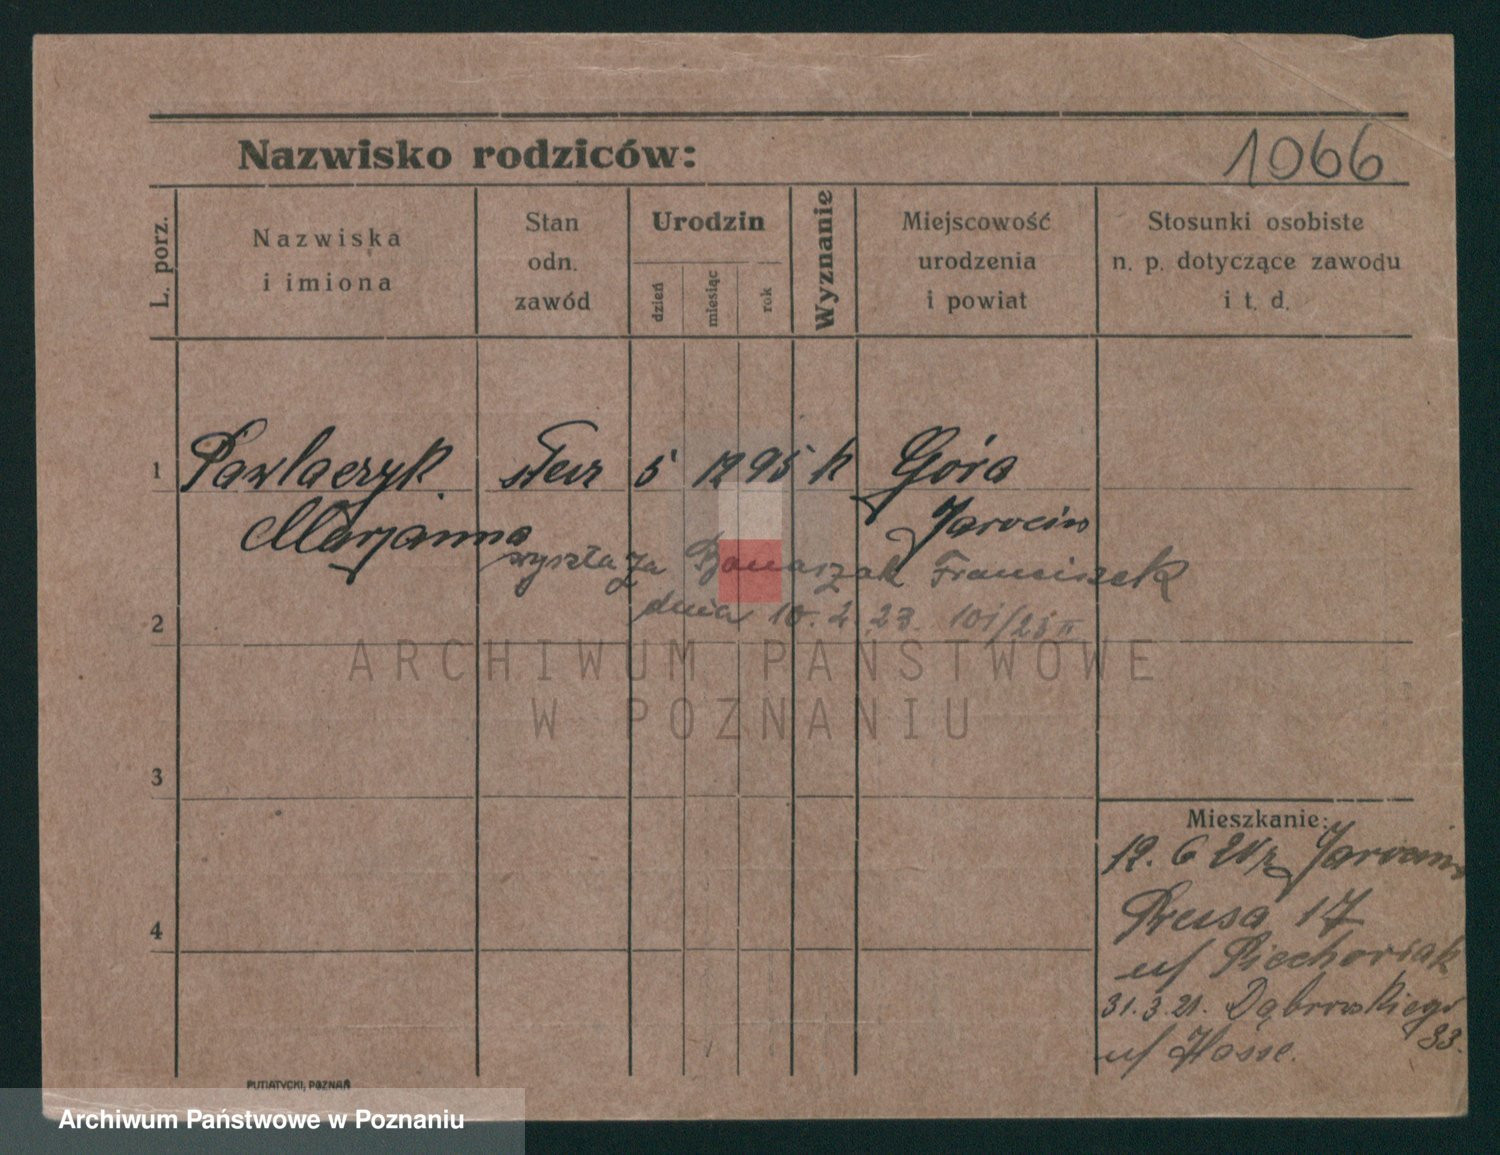 Nazwisko rodziców:
1066
L. porz.
Nazwiska
i imiona
Stan
odn.
zawód
Urodzin
dzień
miesiąc
rok
Wyznanie
Miejscowość
urodzenia
i powiat
Stosunki osobiste
n. p. dotyczące zawodu
i t. d.
1
Pawlaczyk 5 12 95 k Góra
Marjanna Jarocin
wyszła za Banaszak Franciszek
dnia 10. 2. 23.
2
ARCHIWUM PAŃSTWOWE
W POZNANIU
3
Mieszkanie:
12. 6 Jarocin
17
4
u/ Piechoviak
31.3.21. Dąbrowskiego
33.
u/ Hasse.
PUTIATYCKI, POZNAŃ
Archiwum Państwowe w Poznaniu